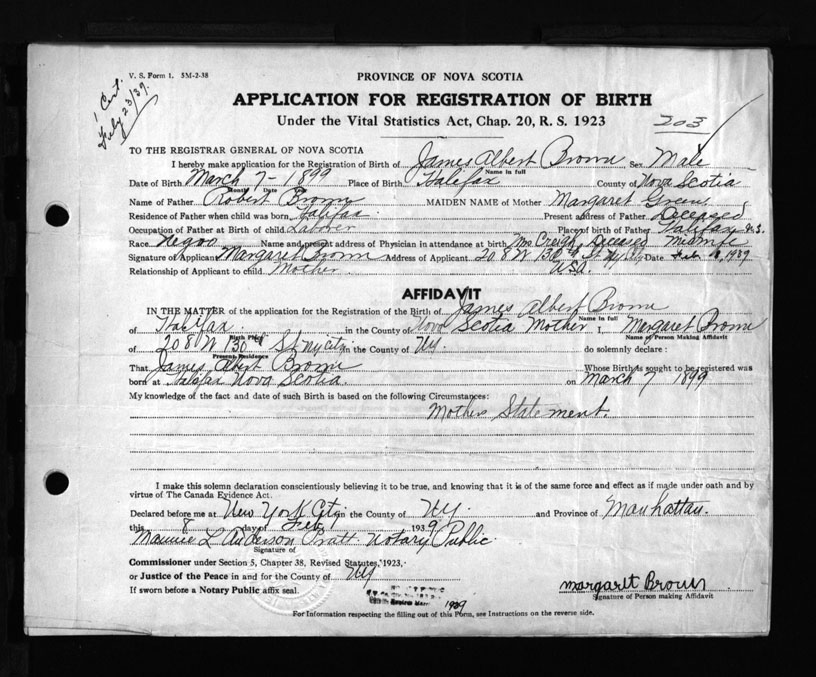 V. S. Form 1. 5M-2-38
1 Cert.
July 23/39.
PROVINCE OF NOVA SCOTIA
APPLICATION FOR REGISTRATION OF BIRTH
Under the Vital Statistics Act, Chap. 20, R. S. 1923
203
TO THE REGISTRAR GENERAL OF NOVA SCOTIA
I hereby make application for the Registration of Birth of James Albert Brown Sex Male
Name in full
Date of Birth March 7 - 1899 Place of Birth Halifax County of Nova Scotia
Month Date
Name of Father Robert Brown MAIDEN NAME of Mother Margaret Green
Residence of Father when child was born Halifax. Present address of Father Deceased
Occupation of Father at Birth of child Laborer Place of birth of Father Halifax N.S.
Race Negro Name and present address of Physician in attendance at birth Mrs Creigh, Deceased Midwife
Signature of Applicant Margaret Brown Address of Applicant 208 W 130th St Date Feb 1939
Relationship of Applicant to child Mother USA.
AFFIDAVIT
IN THE MATTER of the application for the Registration of the Birth of James Albert Brown
Name in full
of Halifax. in the County of Nova Scotia Mother I, Margaret Brown
Birth Place Name of Person Making Affidavit
of 208 W 130th St ny city in the County of Ny. do solemnly declare :
Present Residence
That James Albert Brown Whose Birth is sought to be registered was
born at Halifax Nova Scotia. on March 7 1899
My knowledge of the fact and date of such Birth is based on the following Circumstances:
Mothers Statement.
I make this solemn declaration conscientiously believing it to be true, and knowing that it is of the same force and effect as if made under oath and by
virtue of The Canada Evidence Act.
Declared before me at New York City in the County of Ny. and Province of Manhattan.
this 8 day of Feb 1939
L Anderson Pratt Notary Public
Signature of
Commissioner under Section 5, Chapter 38, Revised Statutes, 1923,
or Justice of the Peace in and for the County of Ny
If sworn before a Notary Public affix seal.
1939
Margaret Brown
Signature of Person making Affidavit
For Information respecting the filling out of this Form, see Instructions on the reverse side.